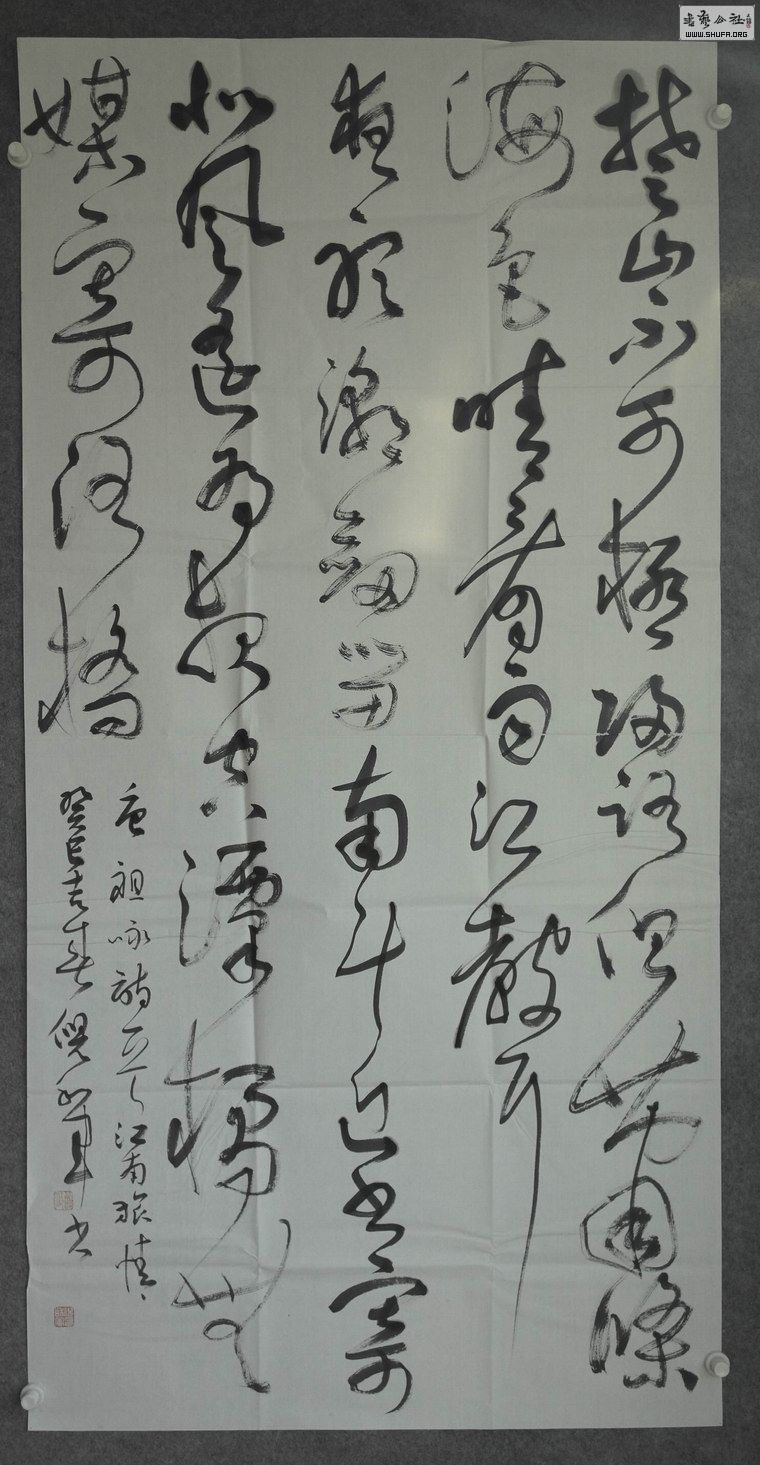 書藝公社
WWW.SHUFA.ORG
楚山不可極歸路但蕭條
海色晴看雨江聲
夜聽潮劍留南斗近書寄
北風遙為報空潭橘無
媒寄洛橋
唐祖咏詩江南旅情
癸巳春倪軍书